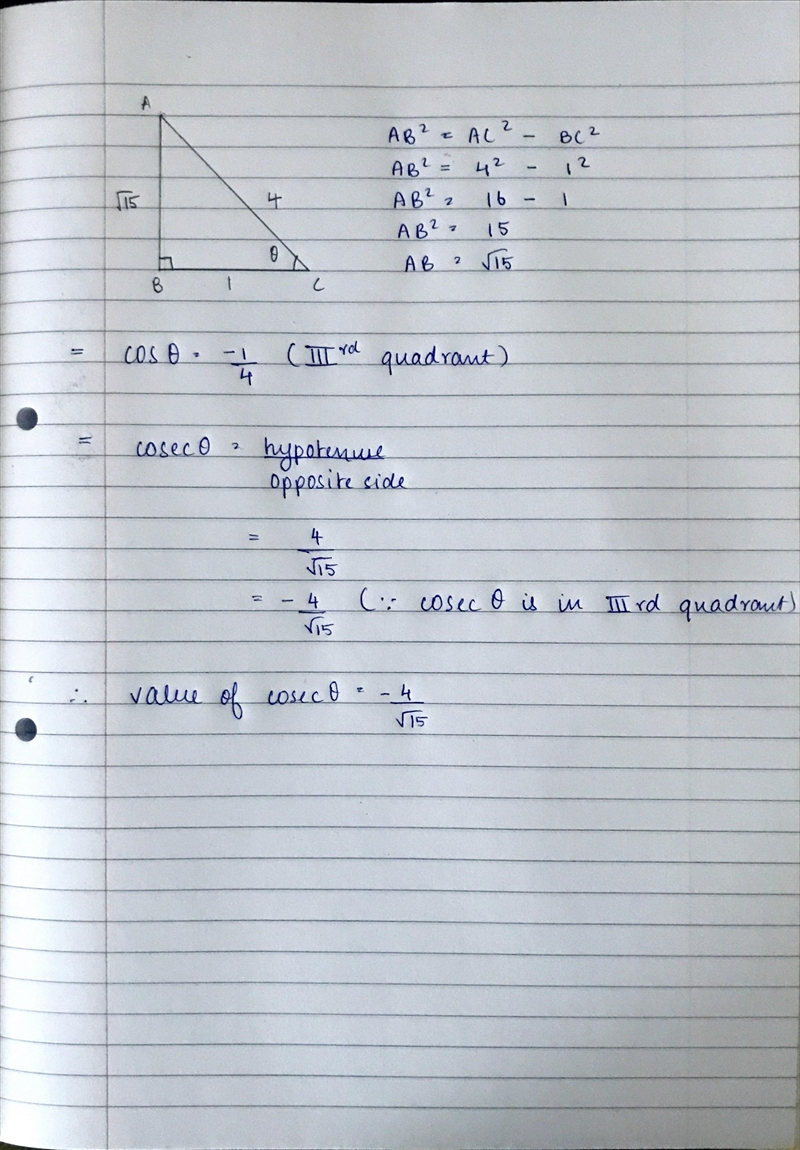 A
√15
4
θ
B
1
C
AB² = AC² - BC²
AB² = 4² - 1²
AB² = 16 - 1
AB² = 15
AB = √15
= cos θ = -1/4 (IIIrd quadrant)
= cosec θ = hypotenuse
opposite side
= 4/√15
= - 4/√15 (∵ cosec θ is in IIIrd quadrant)
∴ value of cosec θ = - 4/√15